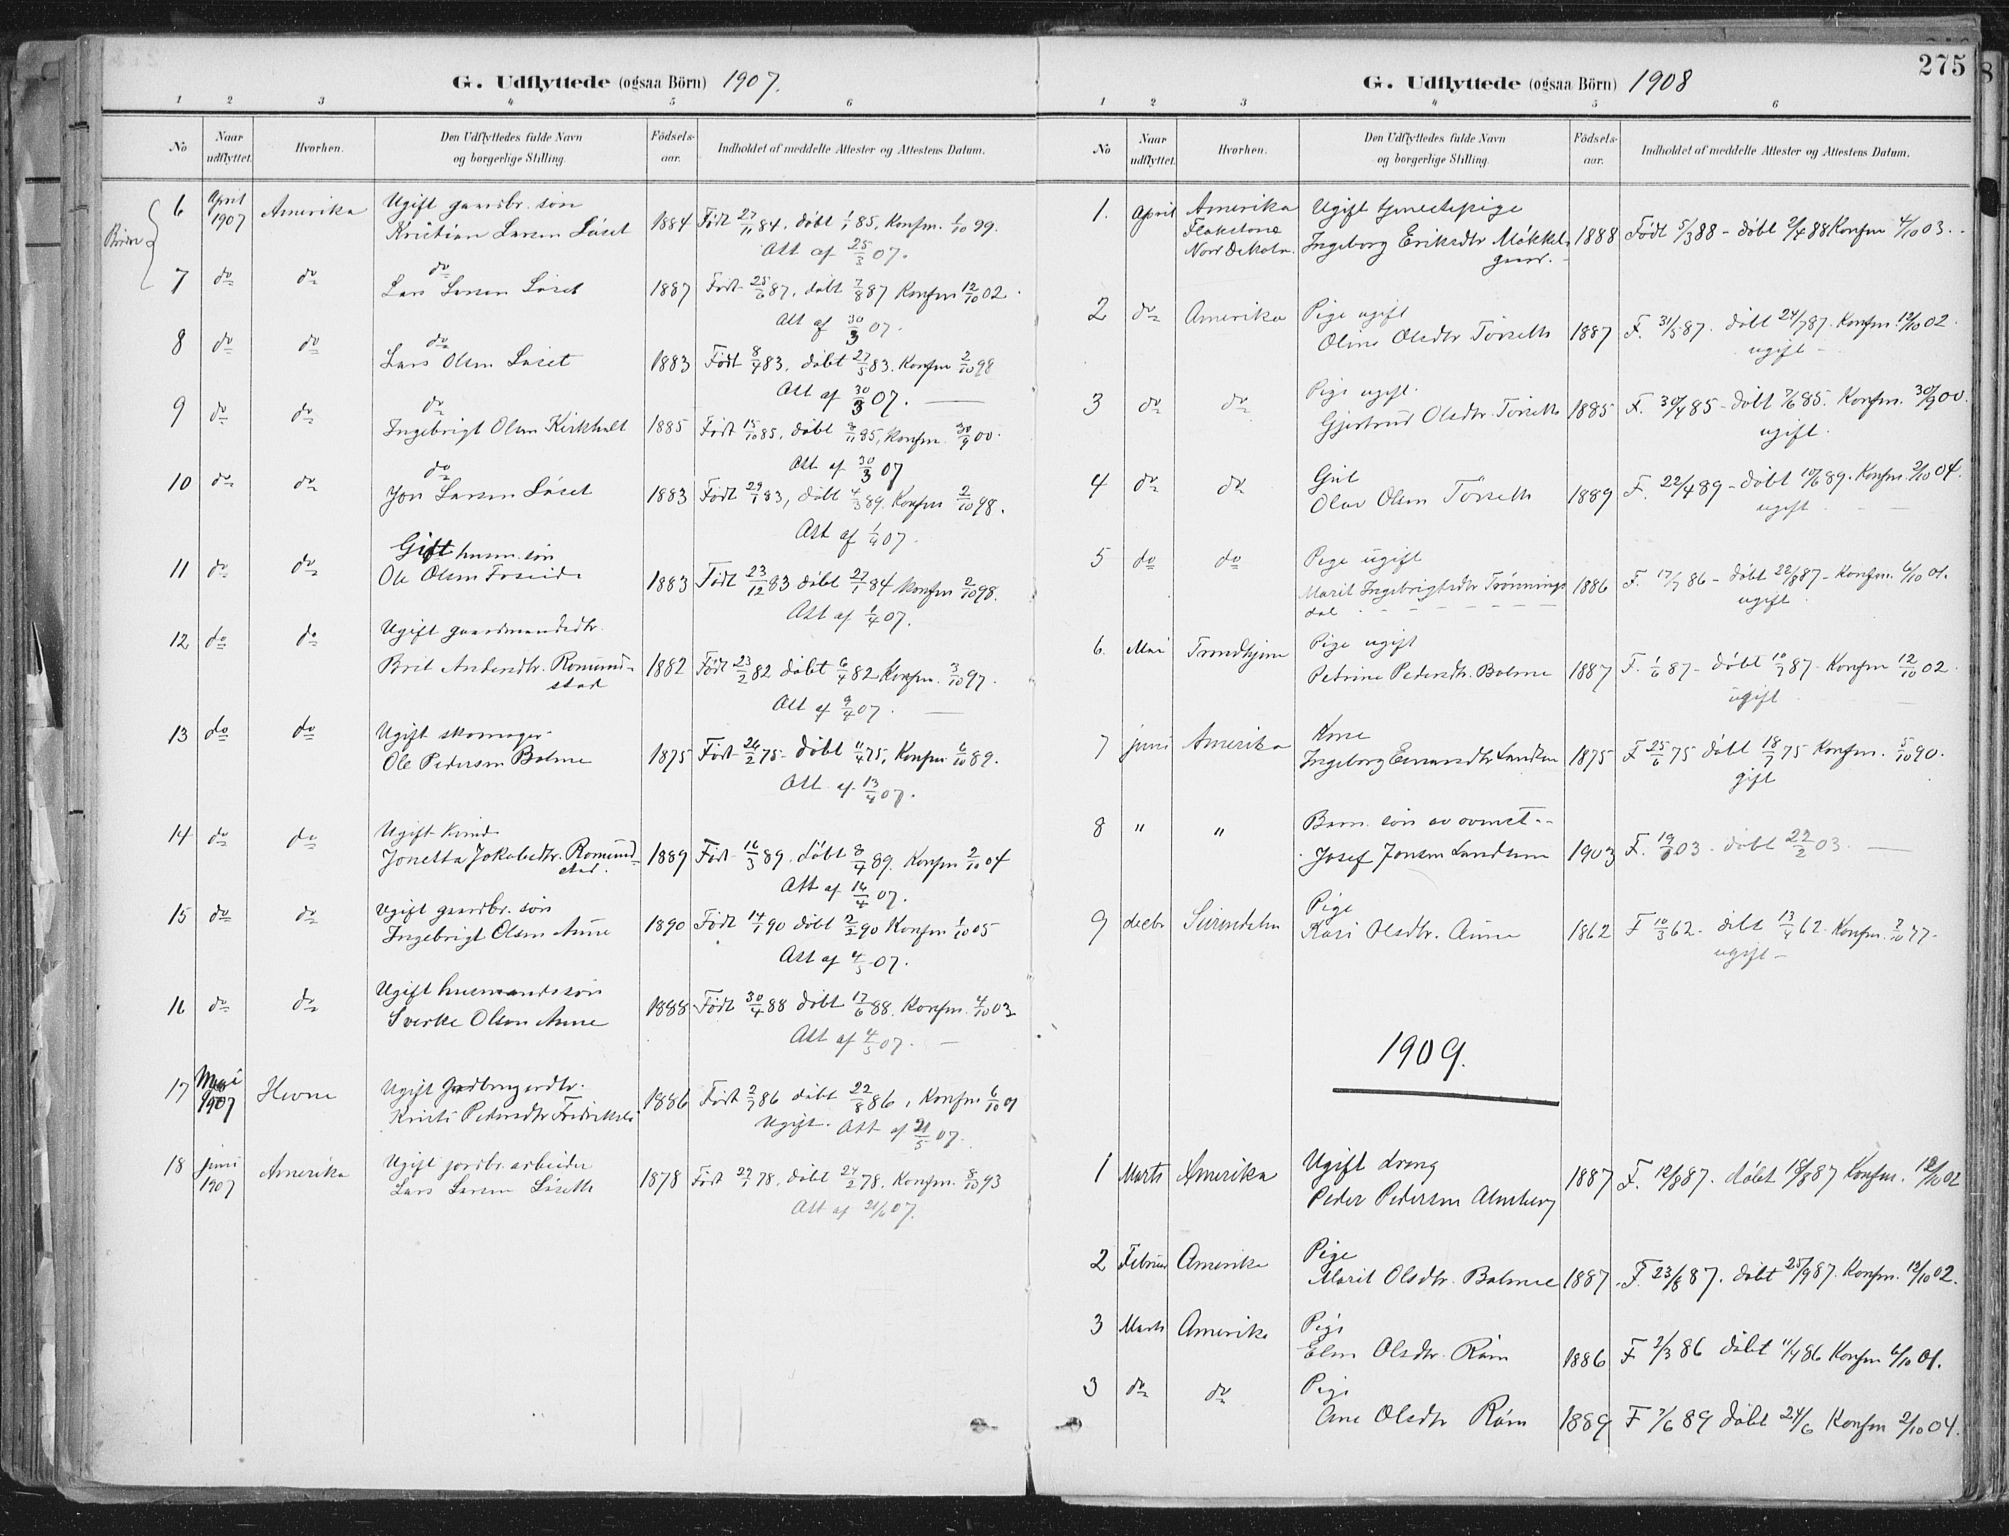 G. Udflyttede (ogsaa Börn) 1907.
1 2 3 4 5 6
No Naar udflyttet. Hvorhen. Den Udflyttedes fulde Navn og borgerlige Stilling. Födsels-aar. Indholdet af meddelte Attester og Attestens Datum.
6 April 1907 Amerika Ugift gaardbr. søn
Kristian Larsen Løset 1884 Født 27/11 84, døbt 1/1 85, Konfm. 1/10 99.
Att af 25/3 07.
7 do do do
Lars Larsen Løset 1887 Født 25/6 87, døbt 7/8 87 Konfm 12/10 02.
Att af 30/3 07.
8 do do do
Lars Olsen Løset 1883 Født 8/4 83, døbt 27/5 83. Konfm 2/10 98
Att af 30/3 07.
9 do do do
Ingebrigt Olsen Kirkholt 1885 Født 15/10 85, døbt 8/11 85, Konfm. 30/9 00.
Att af 30/3 07
10 do do do
Jon Larsen Løset 1883 Født 29/1 83, døbt 4/3 89. Konfm 2/10 98.
Att af 1/4 07.
11 do do Gift husm. søn
Ole Olsen 1883 Født 23/12 83 døbt 27/1 84 Konfm 2/10 98.
Att af 1/4 07.
12 do do Ugift gaardmandsdtr.
Brit Andersdtr. Romund-
stad 1882 Født 23/2 82 døbt 6/4 82 Konfm. 3/10 97.
Att af 9/4 07.
13 do do Ugift skomager
Ole Pedersen Bolme 1875 Født 26/2 75 døbt 11/4 75, Konfm 6/10 89.
Att af 13/4 07.
14 do do Ugift Kvind
Jonetta Jakobsdtr. Romund-
stad. 1889 Født 16/3 89. døbt 8/4 89. Konfm 2/10 04
Att af 16/4 07.
15 do do Ugift gaardbr. søn
Ingebrigt Olsen Aune 1890 Født 14/1 90 døbt 2/2 90 Konfm 1/10 05
Att af 4/5 07.
16 do do Ugift husmandssøn
Sverke Olsen Aune 1888 Født 30/4 88 døbt 17/6 88. Konfm. 4/10 03
Att af 4/5 07.
17 Mai 1907 Hevne Ugift
Pedersdtr 1886 Født 2/7 86 døbt 22/8 86, Konfm 6/10 01
Ugift. Att af 21/5 07.
18 Juni 1907 Amerika Ugift jordbr. arbeider
Lars Larsen Løseth 1878 Født 27/1 78, døbt 24/2 78, Konfm. 8/10 93
Att af 21/6 07.
275
G. Udflyttede (ogsaa Börn) 1908
1 2 3 4 5 6
No Naar udflyttet. Hvorhen. Den Udflyttedes fulde Navn og borgerlige Stilling. Födsels-aar. Indholdet af meddelte Attester og Attestens Datum.
1. April Amerika Ugift tjenestepige
Ingeborg Eriksdtr Møkkel-
gaard. 1888 Født 5/3 88 - døbt 2/4 88 Konfm 4/10 03.
2 do Amerika Pige ugift
Oline Olsdtr Tørseth 1887 F. 31/5 87. døbt 24/7 87. Konfm. 12/10 02.
ugift
3 do do Pige ugift.
Gjertrud Olsdtr. Tørseth 1885 F. 30/4 85 - døbt 7/6 85. Konfm. 30/9 00.
ugift.
4 do do Gut
Olav Olsen Tørseth 1889 F. 22/4 89 - døbt 10/6 89. Konfm. 2/10 04.
ugift
5 do do Pige ugift
Marit Ingebrigtsdtr Trønnings
dal 1886 F. 17/7 86 - døbt 22/8 87 - Konfm. 6/10 01.
ugift
6. Mai Trondhjem Pige ugift
Petrine Pedersdtr. Bolme 1887 F. 1/6 87 - døbt 10/7 87 - Konfm 12/10 02.
ugift
7 juni Amerika Kone
Ingeborg Einarsdtr Landsem 1875 F 25/6 75 døbt 18/7 75 Konfm. 5/10 90.
gift
8 " " Barn. søn av
Josef Jonsen Landsem 1903 F. 03 - døbt 22/2 03.
9 decbr Surendalen Pige
Kari Olsdtr. Aune 1862 F 10/3 62. døbt 13/4 62. Konfm. 7/10 77.
ugift -
1909.
1 Marts Amerika Ugift dreng
Peder Pedersen Almberg 1887 F. 12/8 87. døbt 18/8 87 Konfm. 12/10 02
2 Februar Amerika Pige
Marit Olsdtr. Bolme 1887. F. 23/8 87. døbt 25/9 87. Konfm. 12/10 02.
3 Marts Amerika Pige
Elen Olsdtr. Røen 1886 F 2/3 86 døbt 11/4 86 Konfm 6/10 01.
3 do do Pige
Ane Olsdtr Røen 1889 F 7/6 89 døbt 24/6 Konfm 2/10 04.